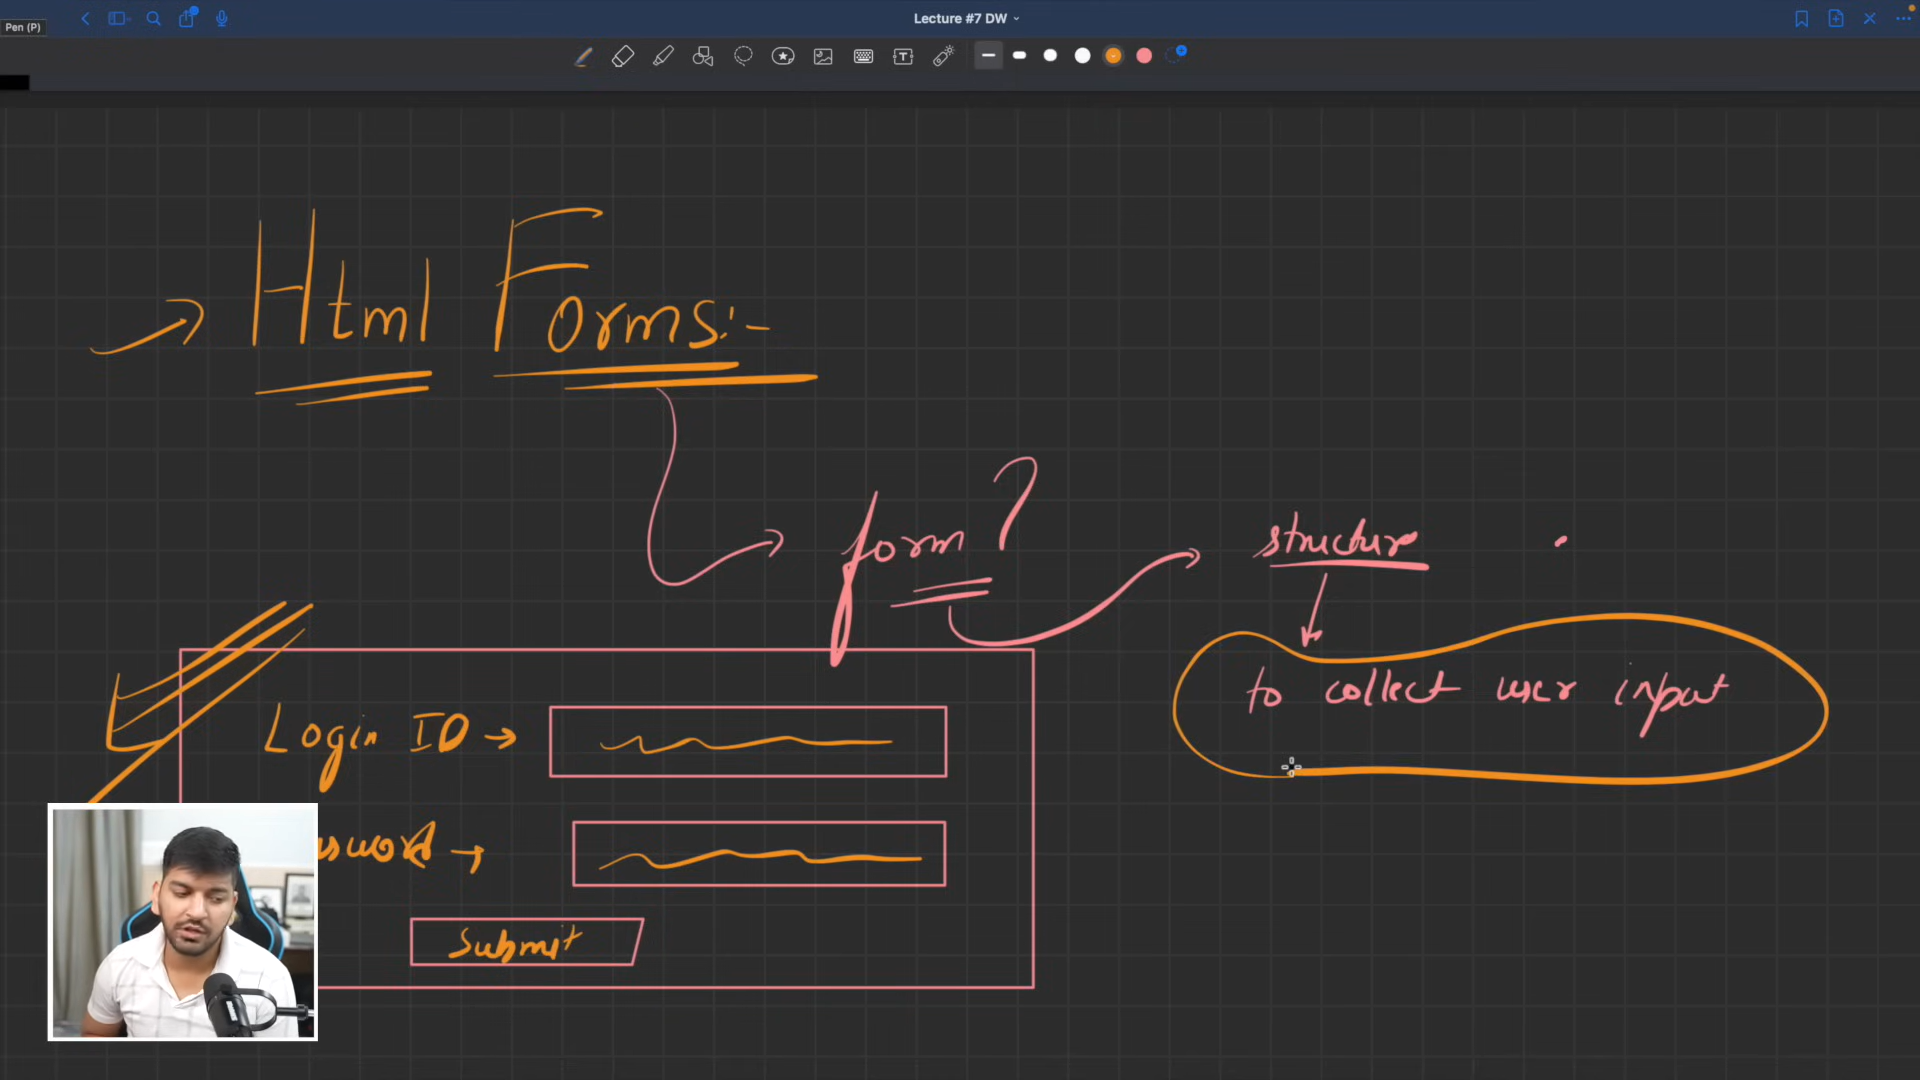 Lecture #7 DW
Pen (P)
→ Html Forms:-
form?
structure
to collect user input
Login ID →
sword →
Submit